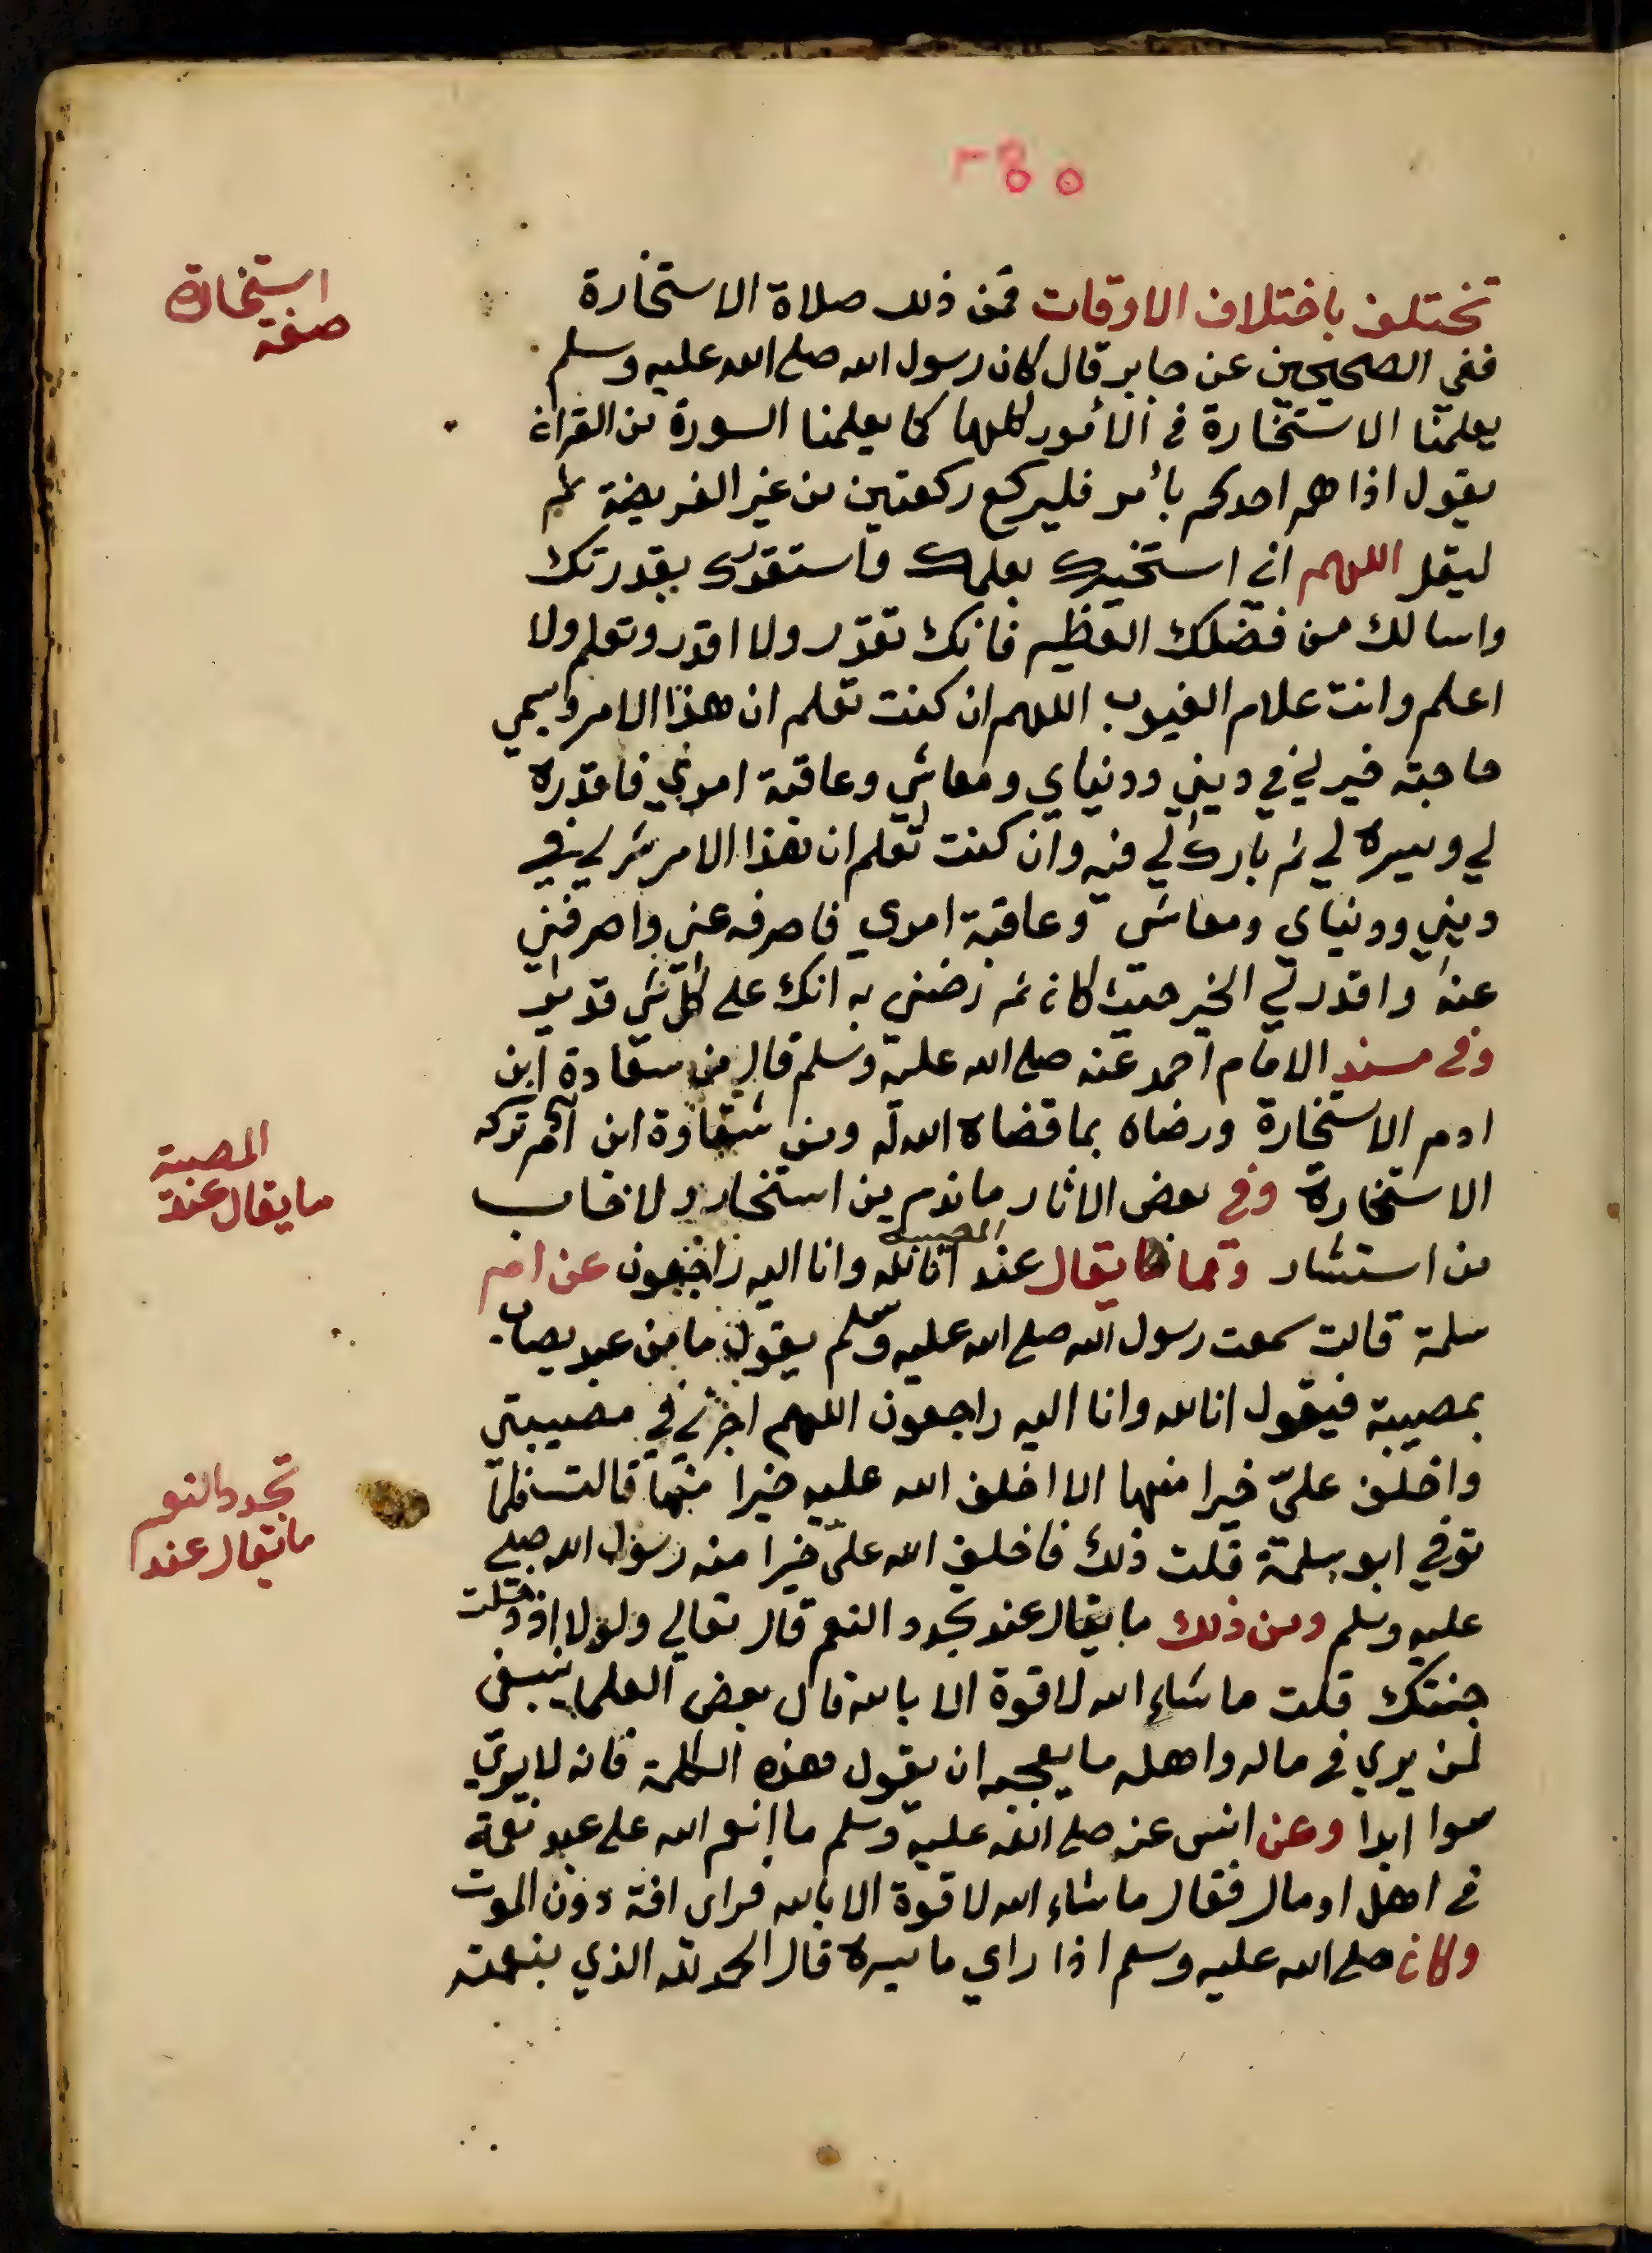 استخارة
صفة
تختلف باختلاف الاوقات فمن ذلك صلاة الاستخارة
ففي الصحيحين عن جابر قال كان رسول الله صلى الله عليه وسلم
يعلمنا الاستخارة في الأمور كلها كما يعلمنا السورة من القران
يقول اذا هم احدكم بأمر فليركع ركعتين من غير الفريضة ثم
ليقل اللهم اني استخيرك بعلمك واستقدرك بقدرتك
واسالك من فضلك العظيم فانك تقدر ولا اقدر وتعلم ولا
اعلم وانت علام الغيوب اللهم ان كنت تعلم ان هذا الامر ويسمي
حاجته خير لي في ديني ودنياي ومعاشي وعاقبة اموري فاقدره
لي ويسره لي ثم بارك لي فيه وان كنت تعلم ان هذا الامر شر لي في
ديني ودنياي ومعاشي وعاقبة اموري فاصرفه عني واصرفني
عنه واقدر لي الخير حيث كان ثم رضني به انك على كل شي قدير
وفي مسند الامام احمد عنه صلى الله عليه وسلم قال من سعادة ابن
ادم الاستخارة ورضاه بما قضاه الله له ومن شقاوة ابن آدم تركه
الاستخارة وفي بعض الاثار ما ندم من استخار ولا خاب
المصيبة
ما يقال عند
من استشار ومما يقال عند المصيبة انا لله وانا اليه راجعون عن ام
سلمة قالت سمعت رسول الله صلى الله عليه وسلم يقول ما من عبد يصاب
بمصيبة فيقول انا لله وانا اليه راجعون اللهم اجرني في مصيبتي
واخلف عليّ خيرا منها الا اخلف الله عليه خيرا منها قالت فلما
تجدد النعم
ما يقال عند
توفي ابو سلمة قلت ذلك فاخلف الله عليّ خيرا منه رسول الله صلى
عليه وسلم ومن ذلك ما يقال عند تجدد النعم قال تعالي ولولا اذ دخلت
جنتك قلت ما شاء الله لا قوة الا بالله قال بعض العلما ينبغي
لمن يري في ماله واهله ما يعجبه ان يقول هذه الكلمة فانه لا يري
سوا ابدا وعن انس عنه صلى الله عليه وسلم ما انعم الله على عبد نعمة
في اهل او مال فقال ما شاء الله لا قوة الا بالله فراى افة دون الموت
وكان صلى الله عليه وسلم اذا راي ما يسره قال الحمد لله الذي بنعمته